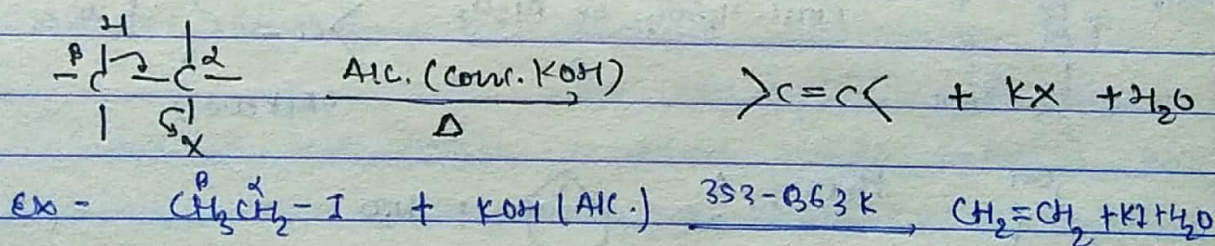 H
β α
-C-C- Alc. (conc. KOH) >C=C< + KX + H₂O
X Δ
β α
Ex - CH₃CH₂-I + KOH (Alc.) 353-363K CH₂=CH₂ + KI + H₂O